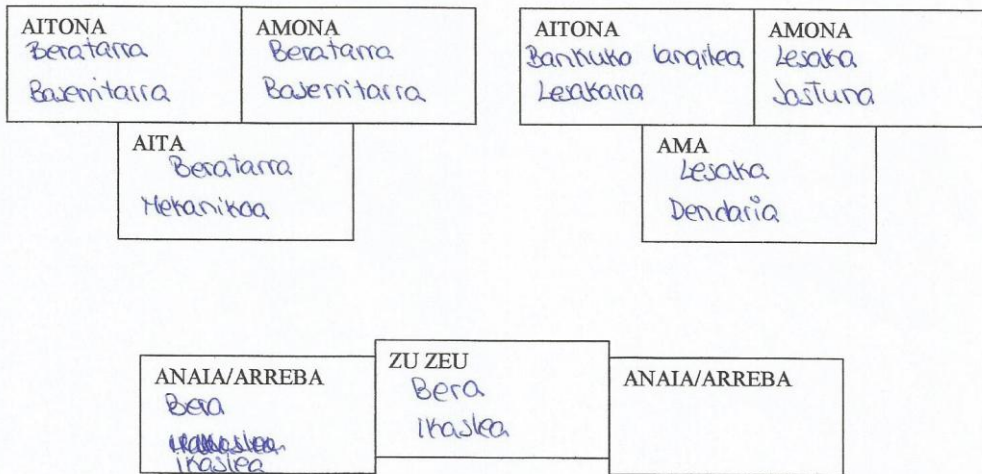 AITONA
Beratarra
Baserritarra
AMONA
Beratarra
Baserritarra
AITA
Beratarra
Mekanikoa
AITONA
Bankuko langilea
Lesakarra
AMONA
Lesaka
Jostuna
AMA
Lesaka
Dendaria
ANAIA/ARREBA
Bera
ikaslea
ZU ZEU
Bera
Ikaslea
ANAIA/ARREBA